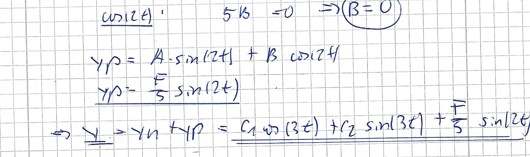 cos(2t): 5B = 0 => B = 0
yp = A·sin(2t) + B cos(2t)
yp = F/5 sin(2t)
=> y = yn + yp = C1 cos(3t) + C2 sin(3t) + F/5 sin(2t)